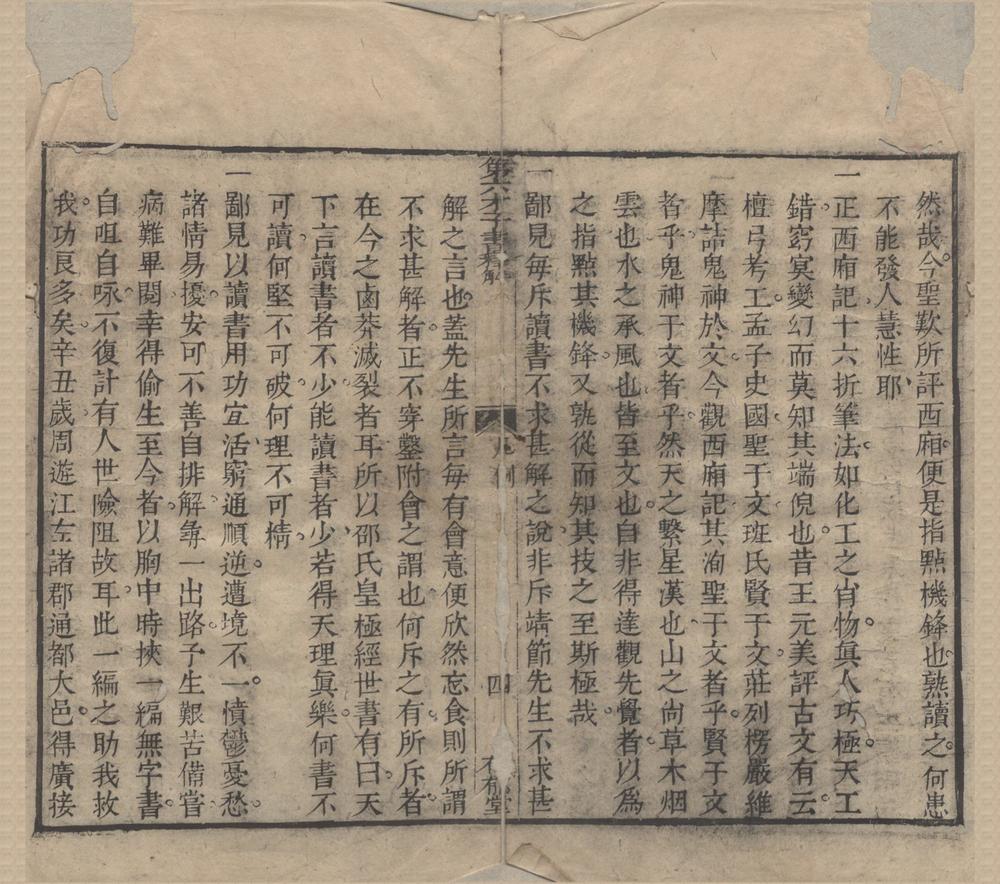 然哉今聖歎所評西廂便是指點機鋒也熟讀之何患
不能發人慧性耶
一正西廂記十六折筆法如化工之肖物眞人巧極天工
錯窈冥變幻而莫知其端倪也昔王元美評古文有云
檀弓考工孟子史國聖于文班氏賢于文莊列楞嚴維
摩詰鬼神於文今觀西廂記其洵聖于文者乎賢于文
者乎鬼神于文者乎然天之繫星漢也山之尚草木烟
雲也水之承風也皆至文也自非得達觀先覺者以爲
之指點其機鋒又孰從而知其技之至斯極哉
一鄙見每斥讀書不求甚解之說非斥靖節先生不求甚
第六才子書
凡例
四
有堂
解之言也蓋先生所言每有會意便欣然忘食則所謂
不求甚解者正不穿鑿附會之謂也何斥之有所斥者
在今之鹵莽滅裂者耳所以邵氏皇極經世書有曰天
下言讀書者不少能讀書者少若得天理眞樂何書不
可讀何堅不可破何理不可精
一鄙見以讀書用功宜活窮通順逆遭境不一憤鬱憂愁
諸情易擾安可不善自排解 一出路子生艱苦備嘗
病難畢閱幸得偷生至今者以胸中時挾一編無字書
自咀自咏不復計有人世險阻故耳此一編之助我救
我功良多矣辛丑歲周遊江左諸郡通都大邑得廣接